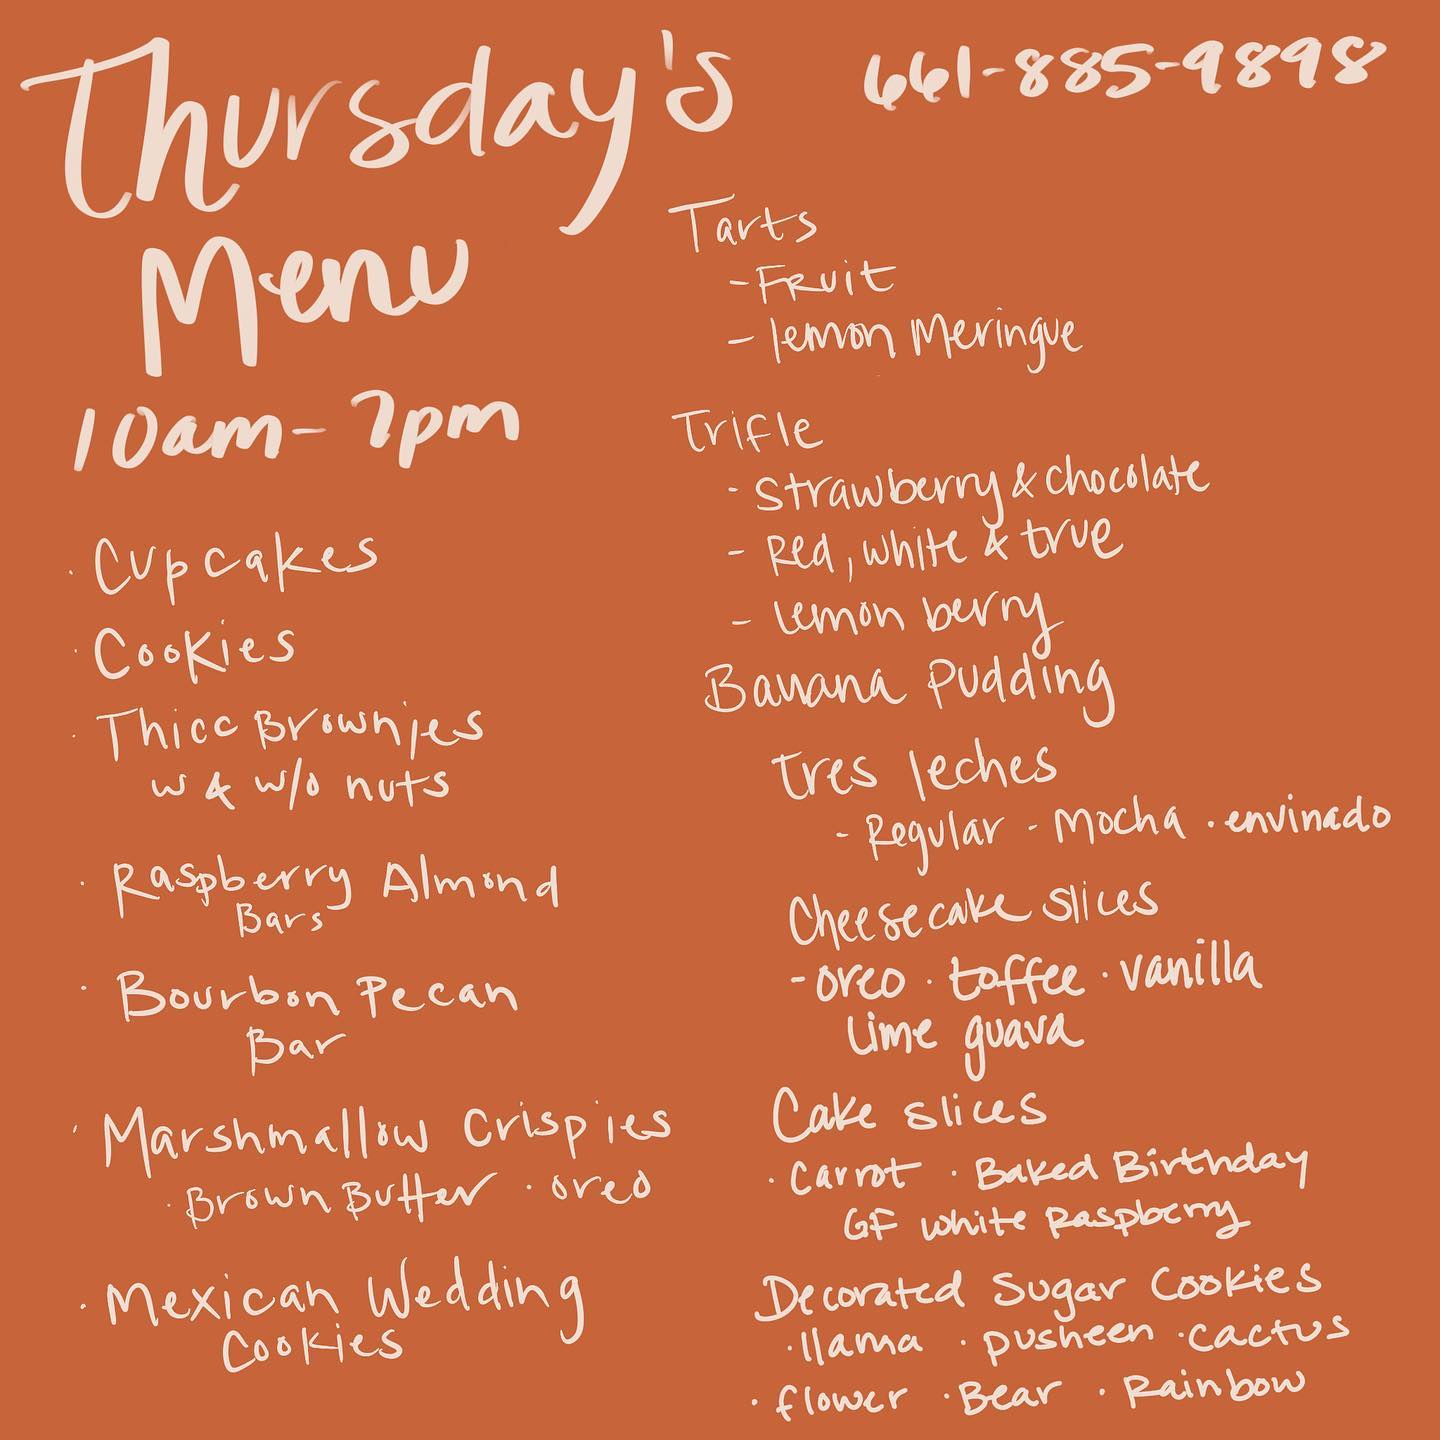 Thursday's
Menu
10am-7pm
661-885-9898
· Cupcakes
· Cookies
· Thicc Brownies
w & w/o nuts
· Raspberry Almond
Bars
· Bourbon Pecan
Bar
· Marshmallow Crispies
· Brown Butter · oreo
· Mexican Wedding
Cookies
Tarts
- Fruit
- lemon Meringue
Trifle
- Strawberry & chocolate
- Red, white & true
- lemon berry
Banana Pudding
Tres leches
- Regular - Mocha · envinado
Cheesecake slices
- oreo · toffee · vanilla
Lime guava
Cake slices
· Carrot · Baked Birthday
GF white Raspberry
Decorated Sugar Cookies
· llama · pusheen · cactus
· flower · Bear · Rainbow